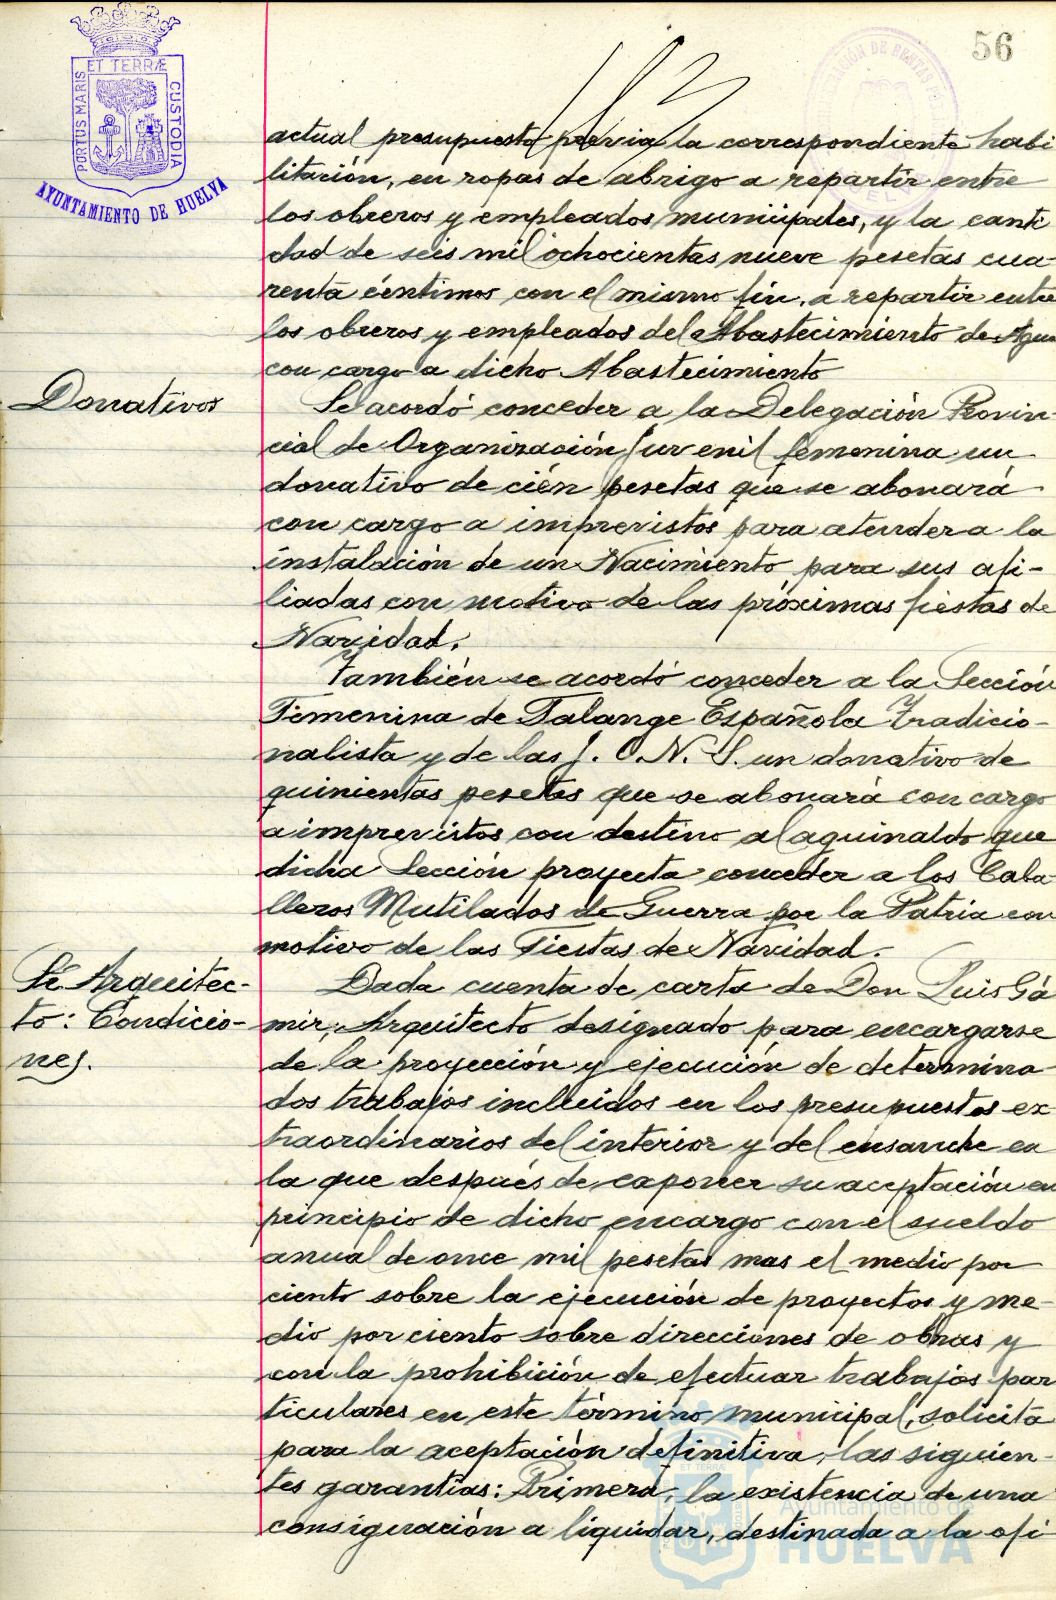 56
PORTUS MARIS ET TERRÆ CUSTODIA
AYUNTAMIENTO DE HUELVA
actual presupuesto previa la correspondiente habi
litación, en ropas de abrigo a repartir entre
los obreros y empleados municipales, y la canti
dad de seis mil ochocientas nueve pesetas cua-
renta céntimos con el mismo fin, a repartir entre
los obreros y empleados del Abastecimiento de Agua
con cargo a dicho Abastecimiento
Donativos
Se acordó conceder a la Delegación Provin-
cial de Organización Juvenil femenina un
donativo de cién pesetas que se abonará
con cargo a imprevistos para atender a la
instalación de un Nacimiento, para sus afi-
liadas con motivo de las próximas fiestas de
Navidad.
También se acordó conceder a la Sección
Femenina de Falange Española Tradicio-
nalista y de las J. O. N. S. un donativo de
quinientas pesetas que se abonará con cargo
a imprevistos con destino al aguinaldo que
dicha Sección proyecta conceder a los Caba
lleros Mutilados de Guerra por la Patria con
motivo de las Fiestas de Navidad.
Sr. Arquitec-
to: Condicio-
nes.
Dada cuenta de carta de Don Luis Gá
mir, Arquitecto designado para encargarse
de la proyección y ejecución de determina
dos trabajos incluidos en los presupuestos ex
traordinarios del interior y del ensanche en
la que después de exponer su aceptación en
principio de dicho encargo con el sueldo
anual de once mil pesetas mas el medio por
ciento sobre la ejecución de proyectos y me-
dio por ciento sobre direcciones de obras y
con la prohibición de efectuar trabajos par
ticulares en este término municipal, solicita
para la aceptación definitiva, las siguien-
tes garantías: Primera, la existencia de una
consignación a liquidar, destinada a la ofi
Ayuntamiento de
HUELVA